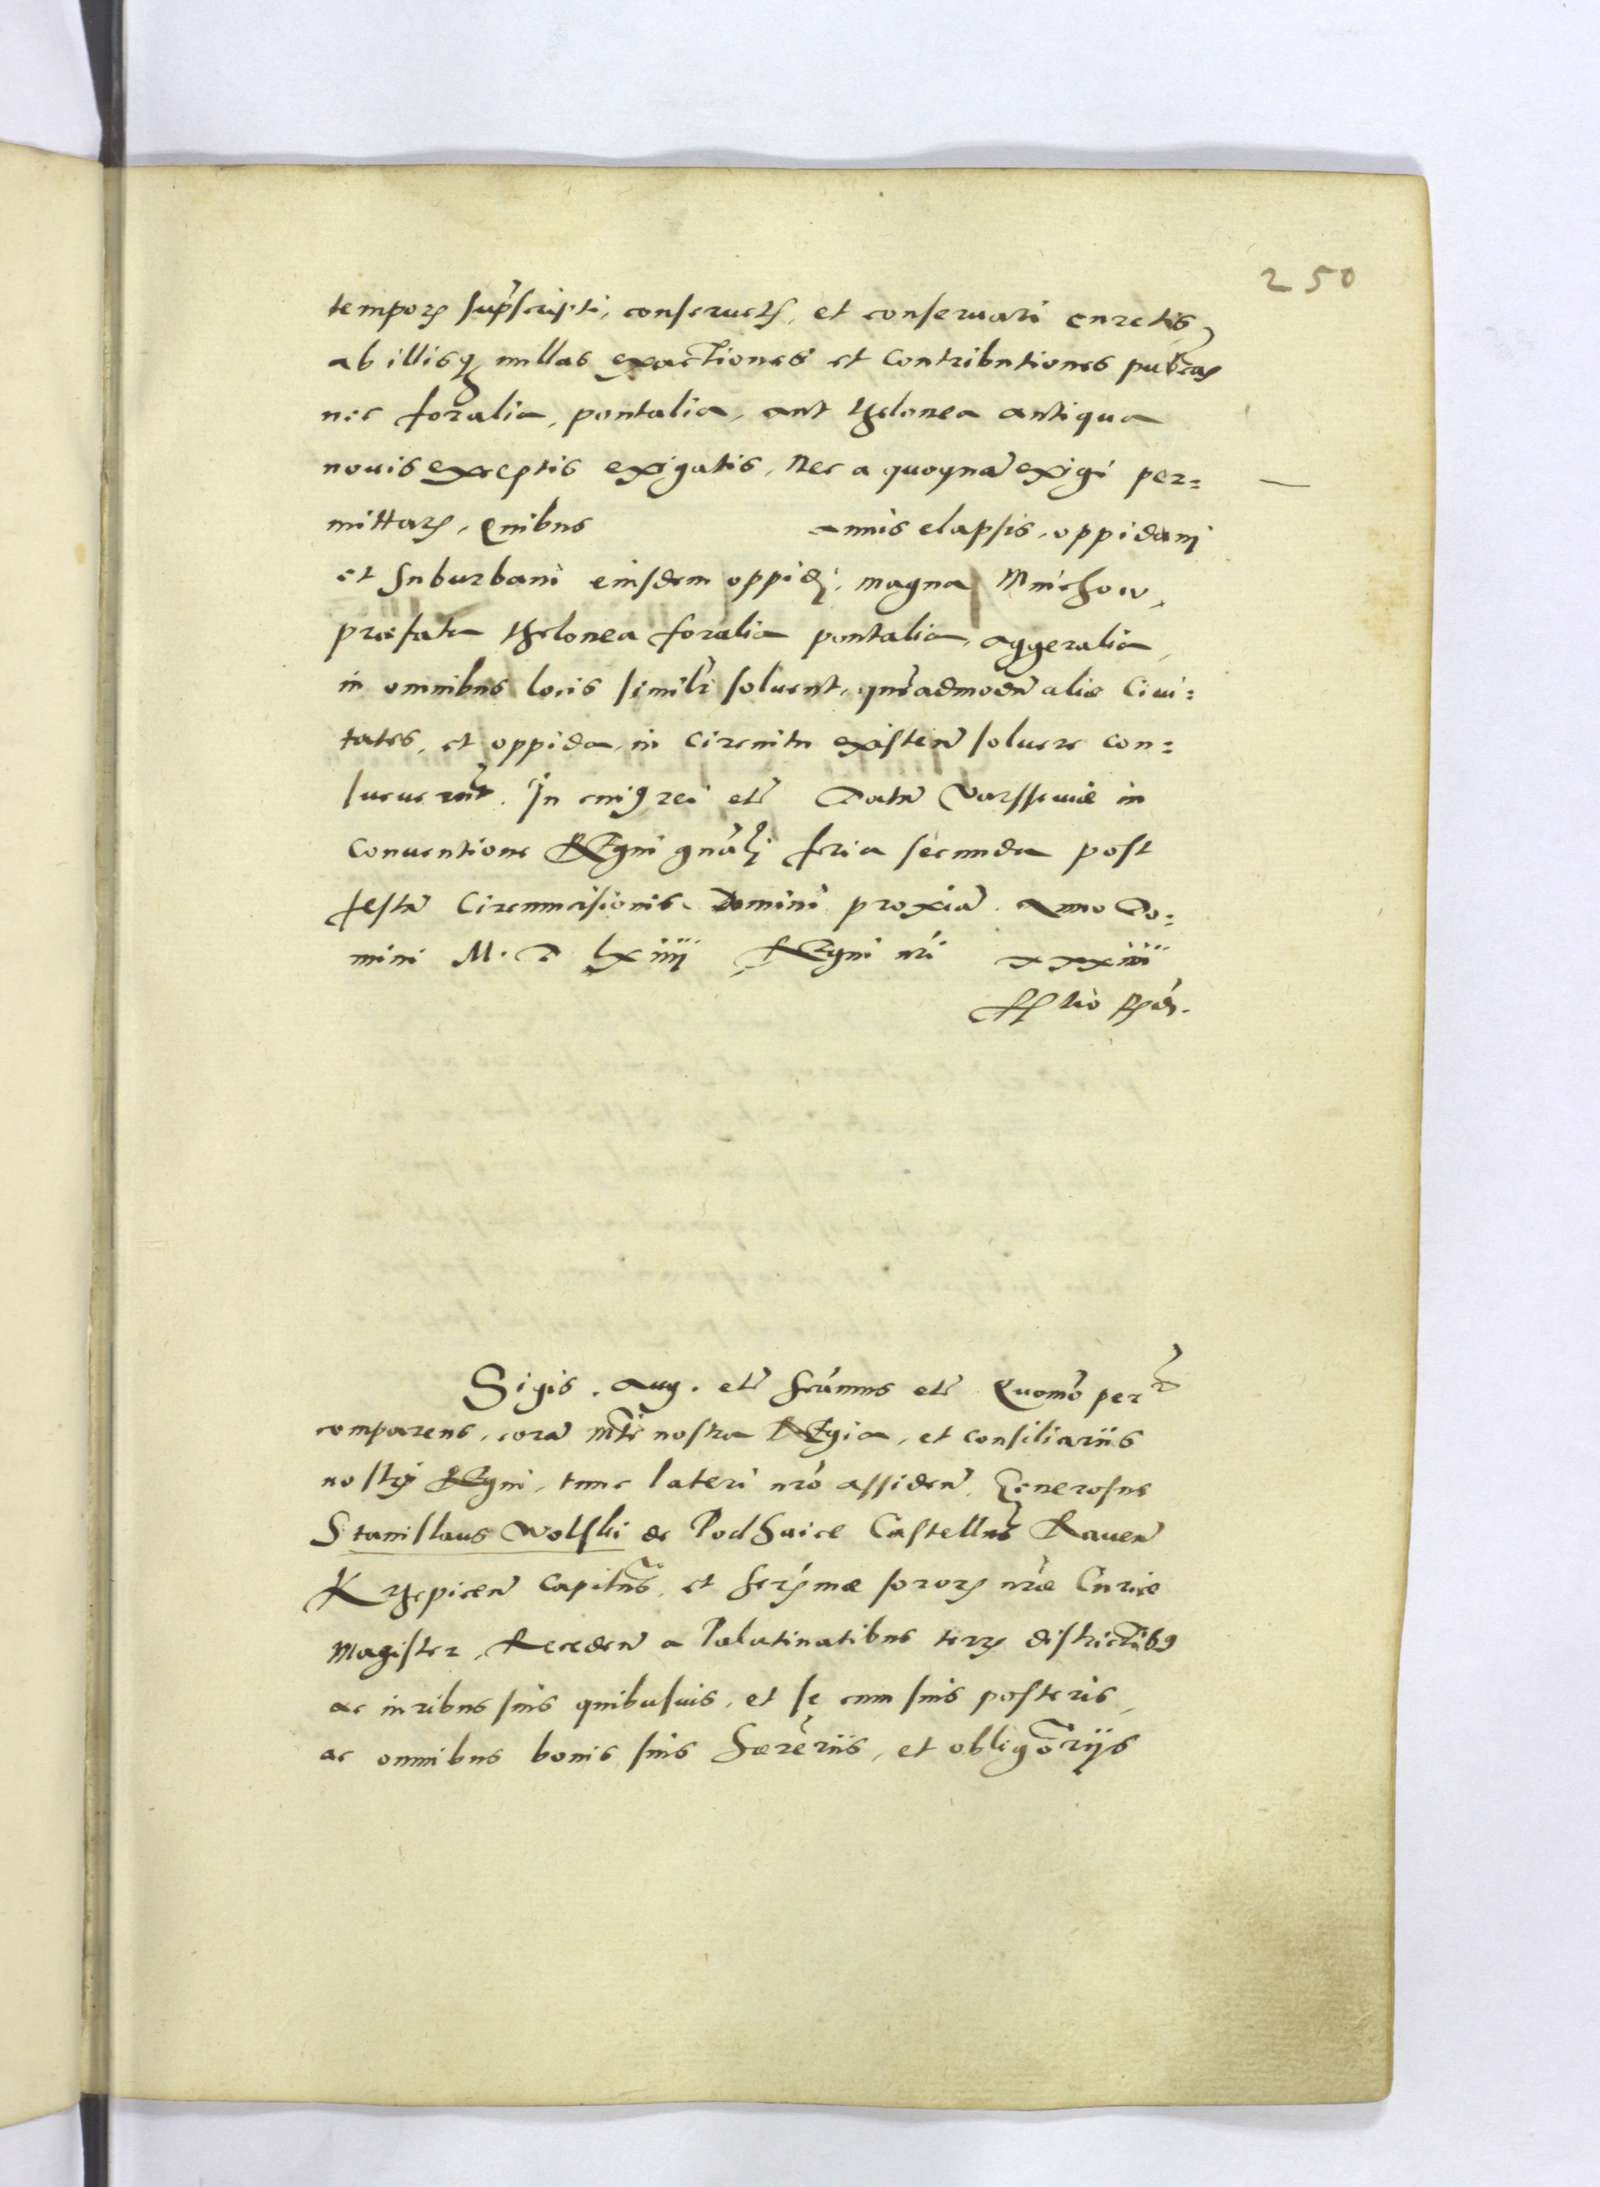 250
temporis suprascripti, conseruetis, et conseruari curetis,
ab illisque nullas exactiones et contributiones publicas
nec foralia, pontalia, aut thelonea antiqua
nouis exceptis exigatis, nec a quoquam exigi per=
mittatis, Quibus annis elapsis, oppidani
et suburbani eiusdem oppidi, magna Mnichow,
præfata thelonea foralia pontalia, aggeralia,
in omnibus locis similiter soluent, quemadmodum aliæ Ciui=
tates, et oppida, in Circuitu existen soluere con=
sueuerunt. In cuius rei etc Datum Varssouiæ in
Conuentione Regni gnali feria secunda post
festum Circumcisionis Domini proxima. Anno Do=
mini M. D lxiiii Regni nri xxxiiii
Sigis. Aug. etc Scimus etc Quomo perr
comparens, coram Mte nostra Regia, et consiliariis
nostris Regni, tunc lateri nro assiden Generosus
Stanislaus Wolski de Podhaice Castellnus Rauen
Krzepicen Capitneus, et Serssmæ sororis nræ Curiæ
Magister, Receden a Palatinatibus terris districtibus
ac iuribus suis quibusuis, et se cum suis posteris,
ac omnibus bonis suis hæreriis, et obligoriis